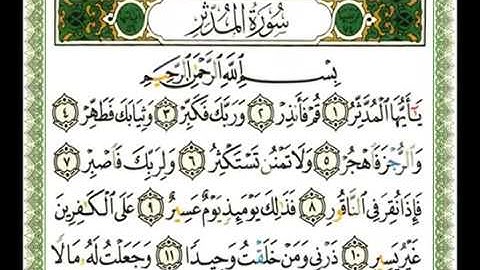 سُورَةُ الْمُدَّثِّرِ
بِسْمِ اللَّهِ الرَّحْمَٰنِ الرَّحِيمِ
يَٰٓأَيُّهَا الْمُدَّثِّرُ ١ قُمْ فَأَنذِرْ ٢ وَرَبَّكَ فَكَبِّرْ ٣ وَثِيَابَكَ فَطَهِّرْ ٤
وَالرُّجْزَ فَاهْجُرْ ٥ وَلَا تَمْنُن تَسْتَكْثِرُ ٦ وَلِرَبِّكَ فَاصْبِرْ ٧
فَإِذَا نُقِرَ فِي النَّاقُورِ ٨ فَذَٰلِكَ يَوْمَئِذٍ يَوْمٌ عَسِيرٌ ٩ عَلَى الْكَٰفِرِينَ
غَيْرُ يَسِيرٍ ١٠ ذَرْنِي وَمَنْ خَلَقْتُ وَحِيدًا ١١ وَجَعَلْتُ لَهُۥ مَالًا